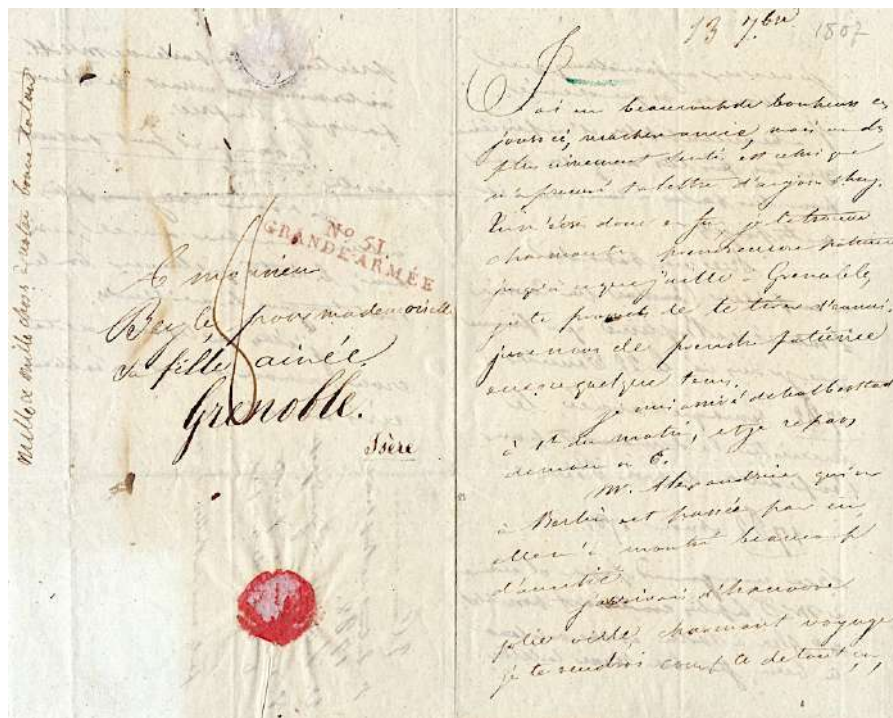 mille & mille choses à notre bonne tatan
No 51
GRANDE-ARMÉE
A monsieur
Beyle, pour mademoiselle
sa fille ainée.
Grenoble.
Isère
13 7.bre 1807
J'ai eu beaucoup de bonheur ces
jours ci, ma chère amie, mais un des
plus vivement senti est celui que
m'a procuré ta lettre d'
donc enfin, je te trouve
charmante patience
jusqu'à ce que j'aille à Grenoble,
je te promets de te tirer d'ennui.
de prendre patience
encore quelque tems.
Je suis arrivé de halberstadt
à 1h du matin, et je repars
demain à 6.
Mr. Alexandrine qui
à Berlin est passée par ici,
elle m'a montré beaucoup
d'amitié.
J'arrivais d'hanovre
jolie ville, charmant voyage
je te rendrai compte de tout